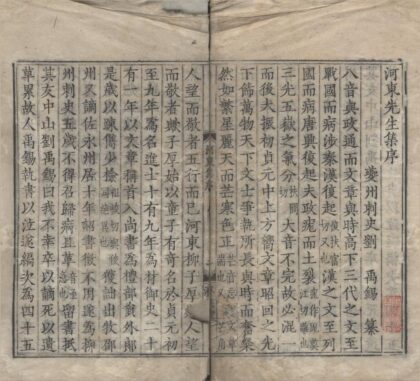 河東先生集序
夔州刺史劉 禹錫 纂
八音與政通而文章與時高下三代之文至
戰國而病涉秦漢復起漢之文至列
國而病唐興復起夫政庬而土裂
三光五嶽之氣分大音不完故必混一
而後大振初貞元中上方嚮文章昭回之光
下飾萬物天下文士爭執所長與時而奮粲
然如繁星麗天而芒寒色正
人望而敬者五行而已河東柳子厚斯人望
而敬者歟子厚始以童子有奇名於貞元初
至九年為名進士十有九年為材御史二十
有一年以文章稱首入尚書為禮部員外郎
是歲以疎雋少檢獲訕出牧邵
州又謫佐永州居十年詔書徵不用遂為柳
州刺史五歲不得召歸病且革留書抵
其友中山劉禹錫曰我不幸卒以謫死以遺
草累故人禹錫執書以泣遂編次為四十五